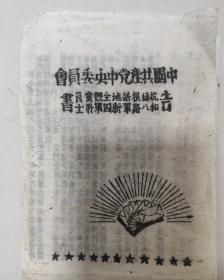 中國共產党中央委員會
告抗日根据地全體黨員
和八路軍新四軍將士書